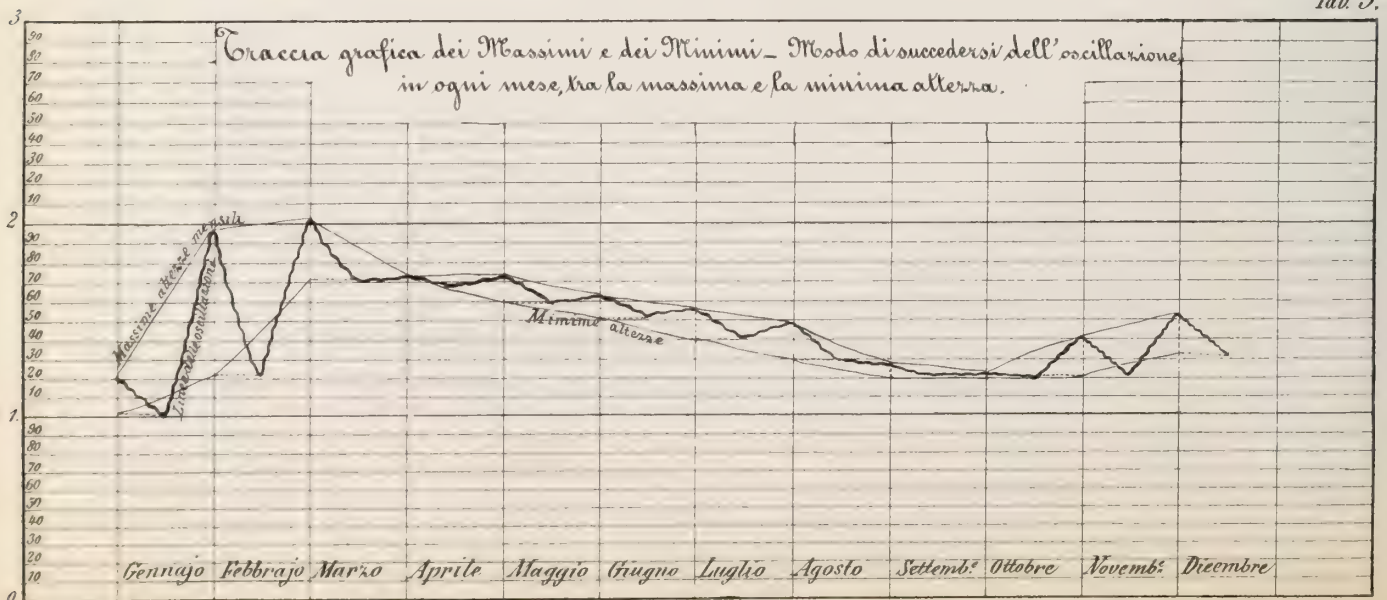 Tav. 3.
Traccia grafica dei Massimi e dei Minimi _ Modo di succedersi dell'oscillazione,
in ogni mese, tra la massima e la minima altezza.
3
90
80
70
60
50
40
30
20
10
2
90
80
70
60
50
40
30
20
10
1.
90
80
70
60
50
40
30
20
10
0
Massime altezze mensili
Linea delle oscillazioni
Minime altezze
Gennajo Febbrajo Marzo Aprile Maggio Giugno Luglio Agosto Settemb.e Ottobre Novemb.e Diecembre